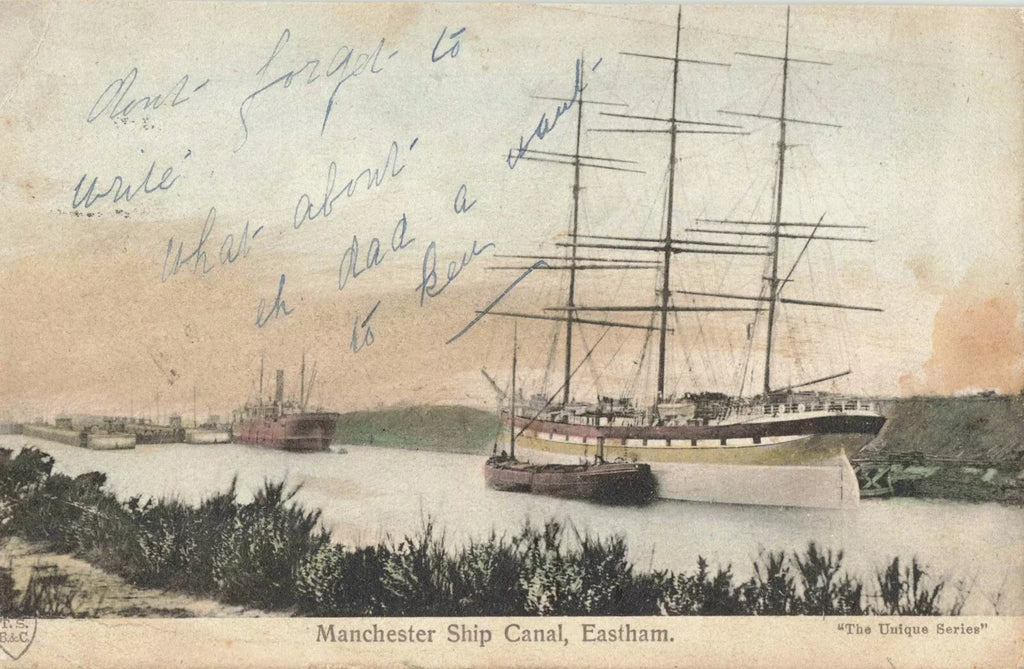 dont forget to
write
what about
eh dad a want
to ken
Manchester Ship Canal, Eastham.
"The Unique Series"
T.S.
B.&C.